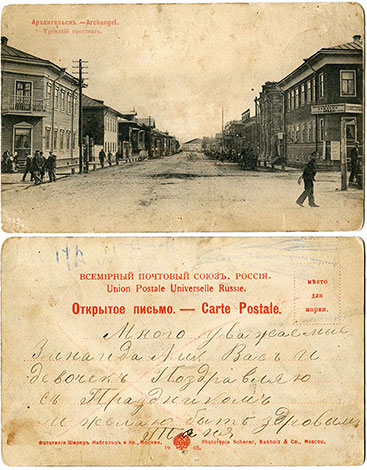 Архангельскъ.—Archangel.
Троицкiй проспектъ.
ВСЕМIРНЫЙ ПОЧТОВЫЙ СОЮЗЪ. РОССIЯ.
Union Postale Universelle Russie.
Открытое письмо. — Carte Postale.
мѣсто
для
марки.
Много уважаемыи
Зинаида Вас и
девочек Поздравляю
съ Праздником
и желаю быть здоровым
Таня
Фототипiя Шереръ Набгольцъ и Ко., Москва.
Phototypie Scherer, Nabholz & Co., Moscou.